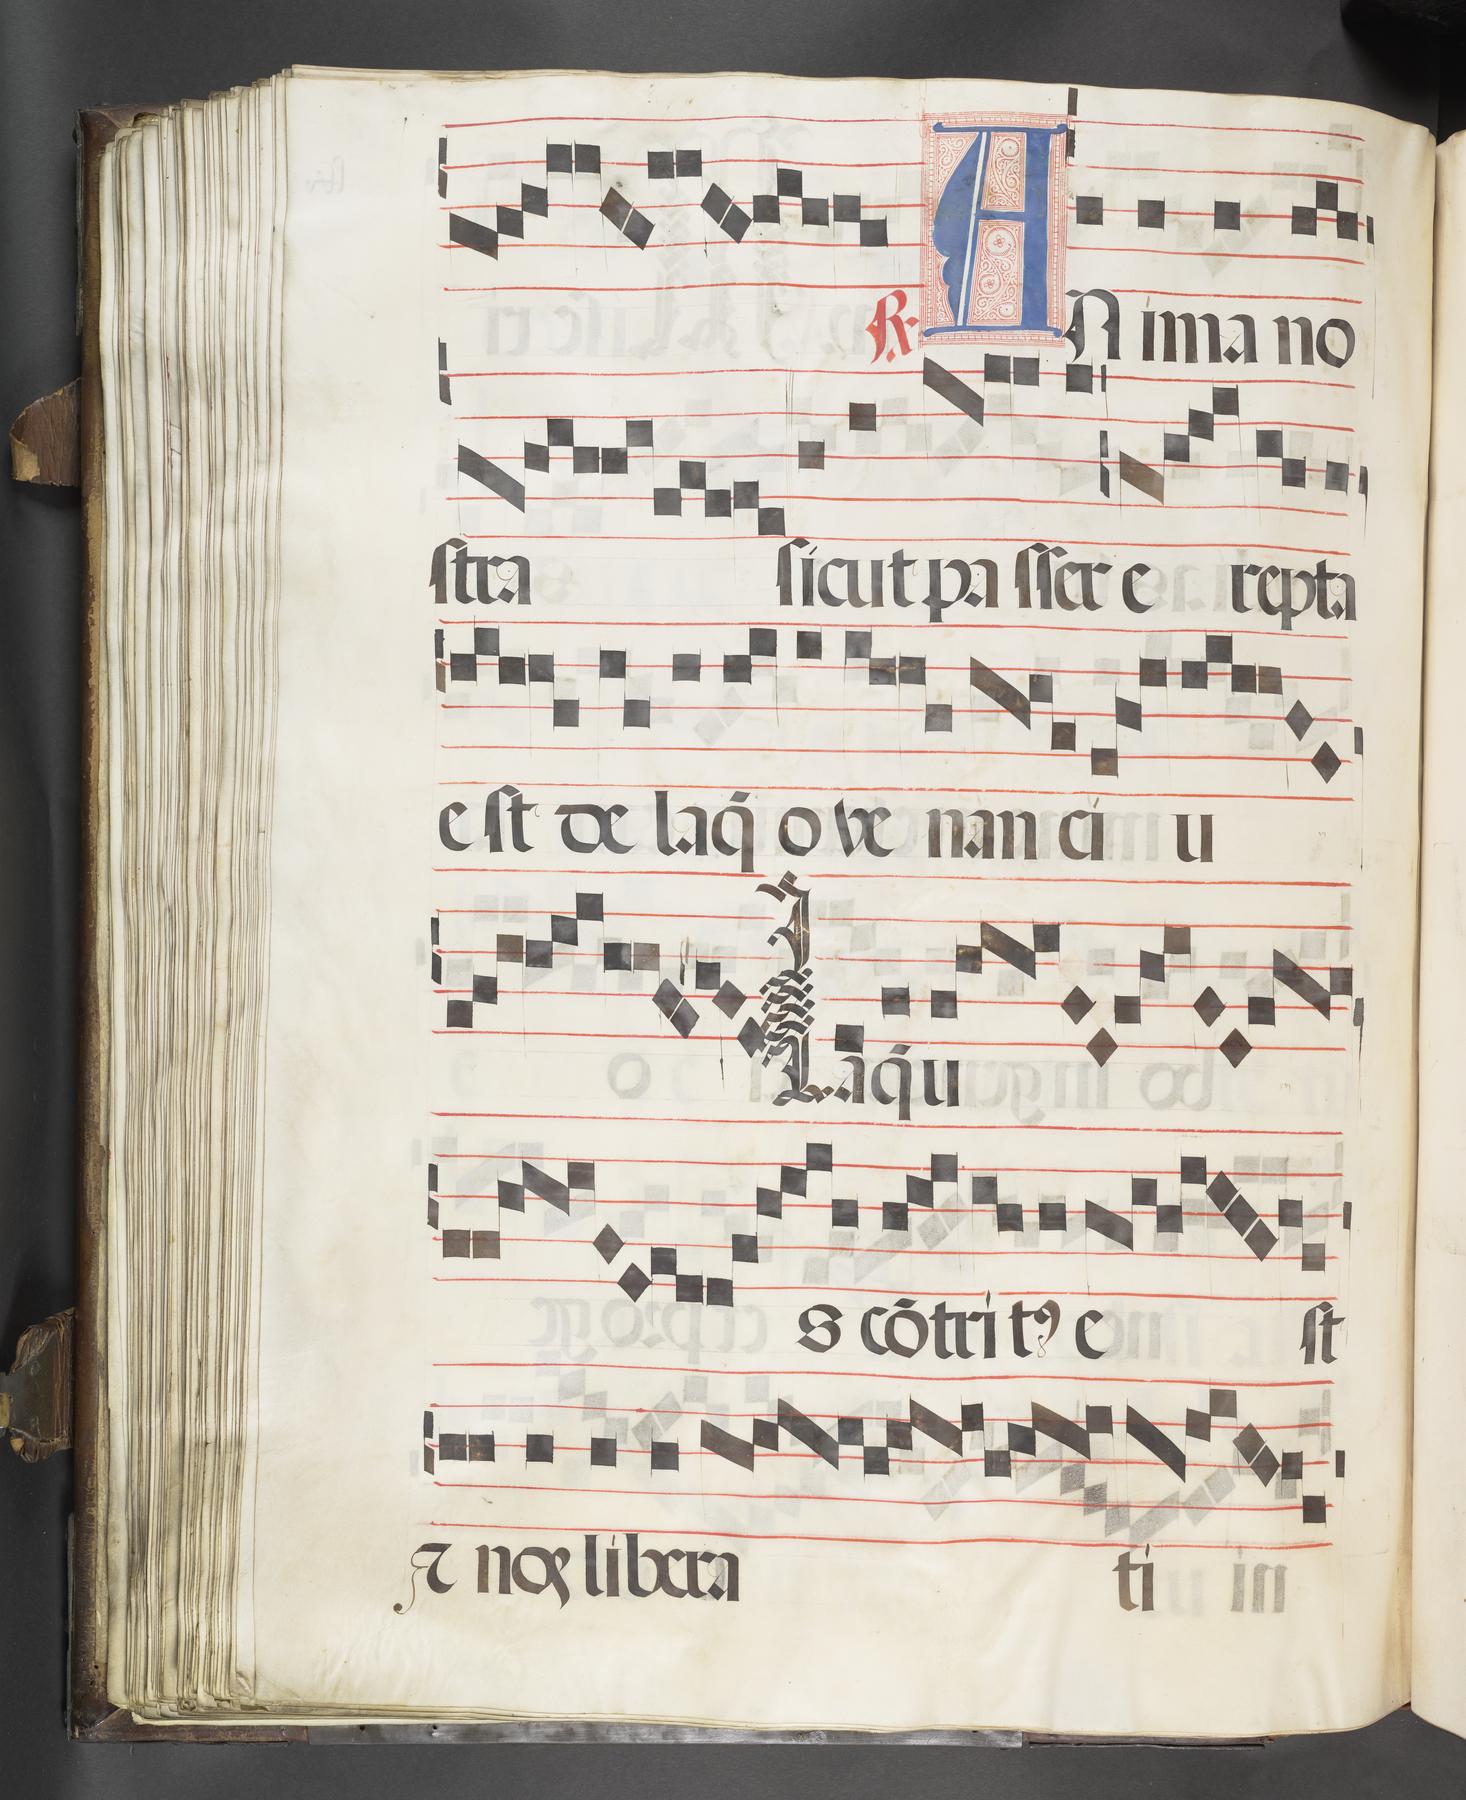 R. AN ima no
stra sicut pa sser e repta
est de laq̃ o ve nan ci u
Laq̃u
s cõtri tꝰ e st
⁊ noẜ libera ti